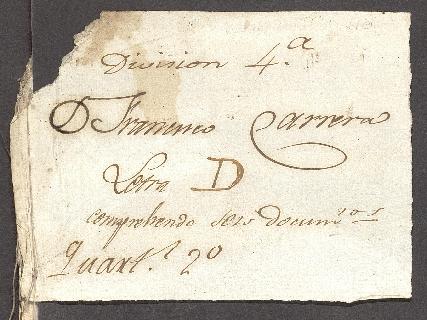 Division 4.ª
D Francisco Carrera
Letra D
comprehende seis docum.tos
Quart.l 2º